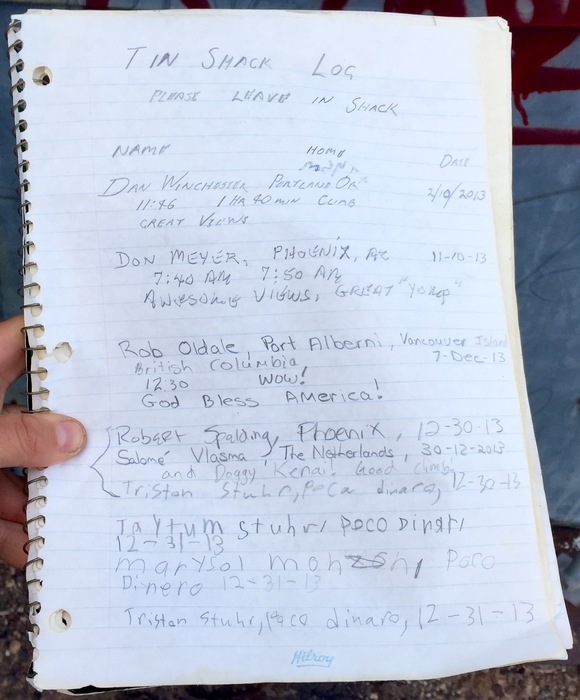 TIN SHACK LOG
PLEASE LEAVE IN SHACK
NAME HOME DATE
DAN WINCHESTER PORTLAND OR 2/10/2013
11:46 1 HR 40 MIN CLIMB
GREAT VIEWS
DON MEYER, PHOENIX, AZ 11-10-13
7:40 AM 7:50 AM
AWESOME VIEWS, GREAT
Rob Oldale, Port Alberni, Vancouver Island
British Columbia 7-Dec-13
12:30 WOW!
God Bless America!
Robert Spalding, Phoenix, 12-30-13
Salomé Vlasma, The Netherlands, 30-12-2013
and Doggy Kenai! Good climb
Tristan Stuhr, Poca dinaro, 12-30-13
Taytum stuhr, poco Dinari
12-31-13
marysol moh Poco
Dinero 12-31-13
Tristan stuhr, poco dinaro, 12-31-13
Hilroy